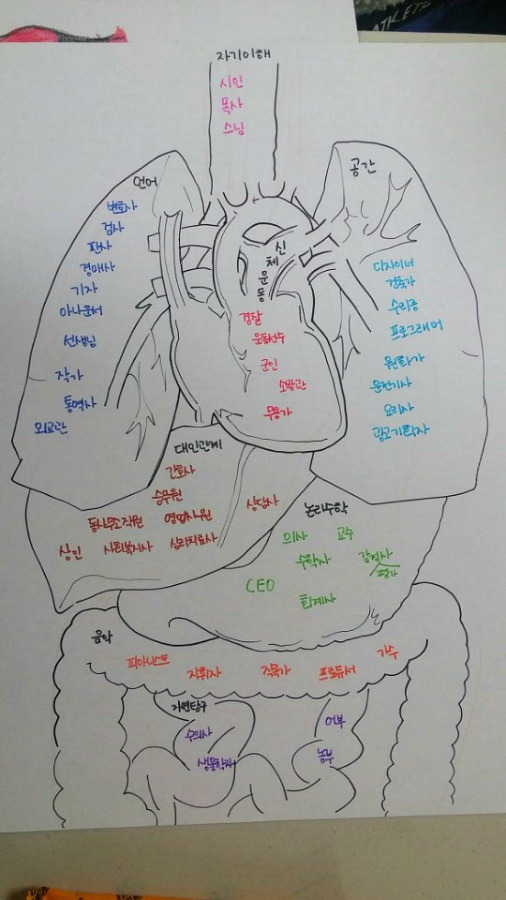 ATHLETE
자기이해
시인
목사
스님
언어
변호사
검사
판사
경매사
기자
아나운서
선생님
작가
통역사
외교관
공간
디자이너
건축가
수리공
프로그래머
원화가
운전기사
요리사
광고기획자
신체운동
경찰
운동선수
군인
소방관
무용가
대인관계
간호사
승무원
동사무소직원 영업사원 상담사
상인 사회복지사 심리치료사
논리수학
의사 교수
수학자 감정사
평가
CEO
회계사
음악
피아니스트 지휘자 작곡가 프로듀서 가수
자연탐구
수의사 어부
생물학자 농부